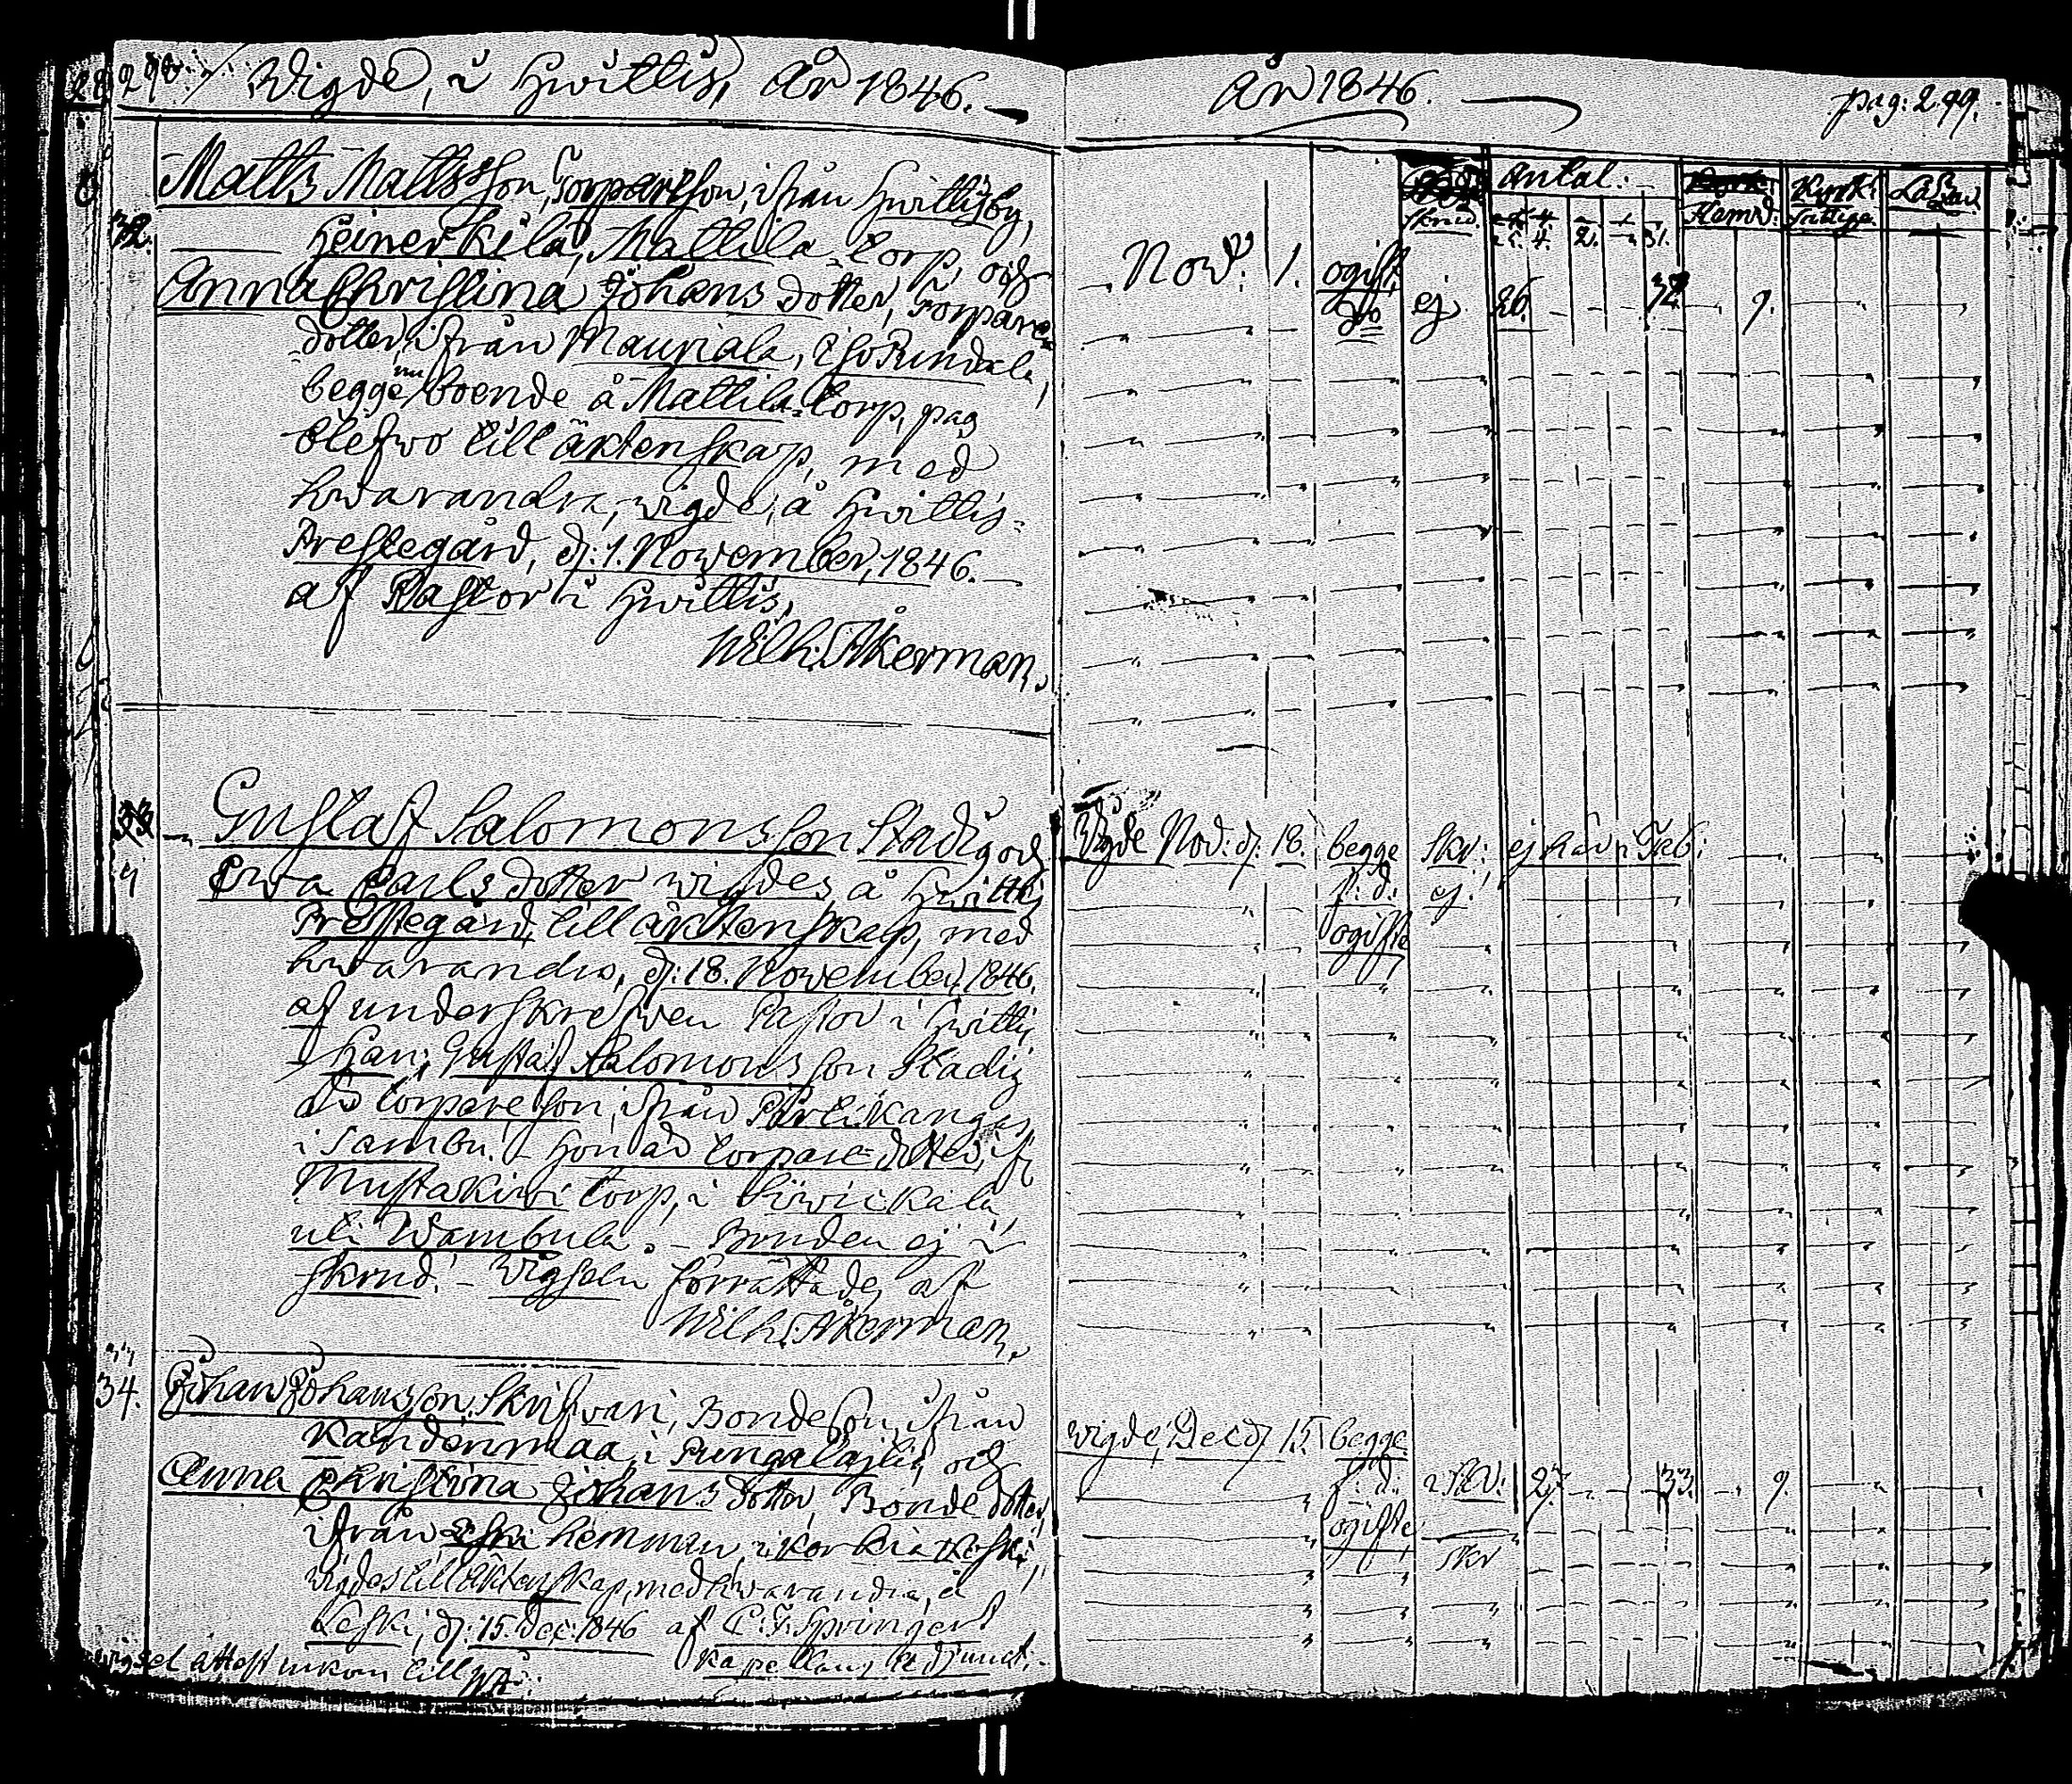 298. Wigde, i Hwittis, År 1846.
Matts Mattsson, Torpareson, ifrån Hwittisby,
32.
Heinerkilä, Mattila torp, och
Anna Christina Johans dotter, Torpare
dotter, ifrån Mauriala,
begge nu boende å Mattila torp, pag
blefwo till äktenskap, med
hwarandra, wigde, å Hwittis-
Prestegård, d: 1. November, 1846.
af Pastor i Hwittis,
Wilh: Åkerman.
33
Gustaf Salomonsson Stadig och
Ewa Carlsdotter wigdes, å Hwittis
Prestegård, till äktenskap, med
hwarandra, d: 18. November, 1846.
af underskrefwen Pastor i Hwittis
Han, Gustaf Salomonsson Stadig
är torpareson, ifrån
i Sambu. - Hon är torpare-dotter, ifr
Mustakiwi torp, i
uti Wambula. - Bruden ej i
skrud. - Wigseln förrättades af
Wilh: Åkerman.
34. Johan Johansson Skrifwari, Bondeson, ifrån
Kahdenmaa, i Pungalaitis, och
Anna Christina Johans dotter, Bonde dotter,
ifrån Eski hemman, i Korkiakoski,
wigdes till Äktenskap, med hwarandra, å
d: 15. Dec: 1846 af C. F. Springert
Kapellans Adjunct.
wigsel attest inkom till WÅ:
År 1846. pag: 299.
Antal: Kyrk:
skrud. 4 2. Hemd:
Nov: 1. ogift
do ej 26. 32 9.
Wigde Nov: d: 18. begge skr: ej
f. d. ej
ogifte
wigde, Dec d 15 begge
f. d. i skr: 27. 33. 9.
ogifte
skr